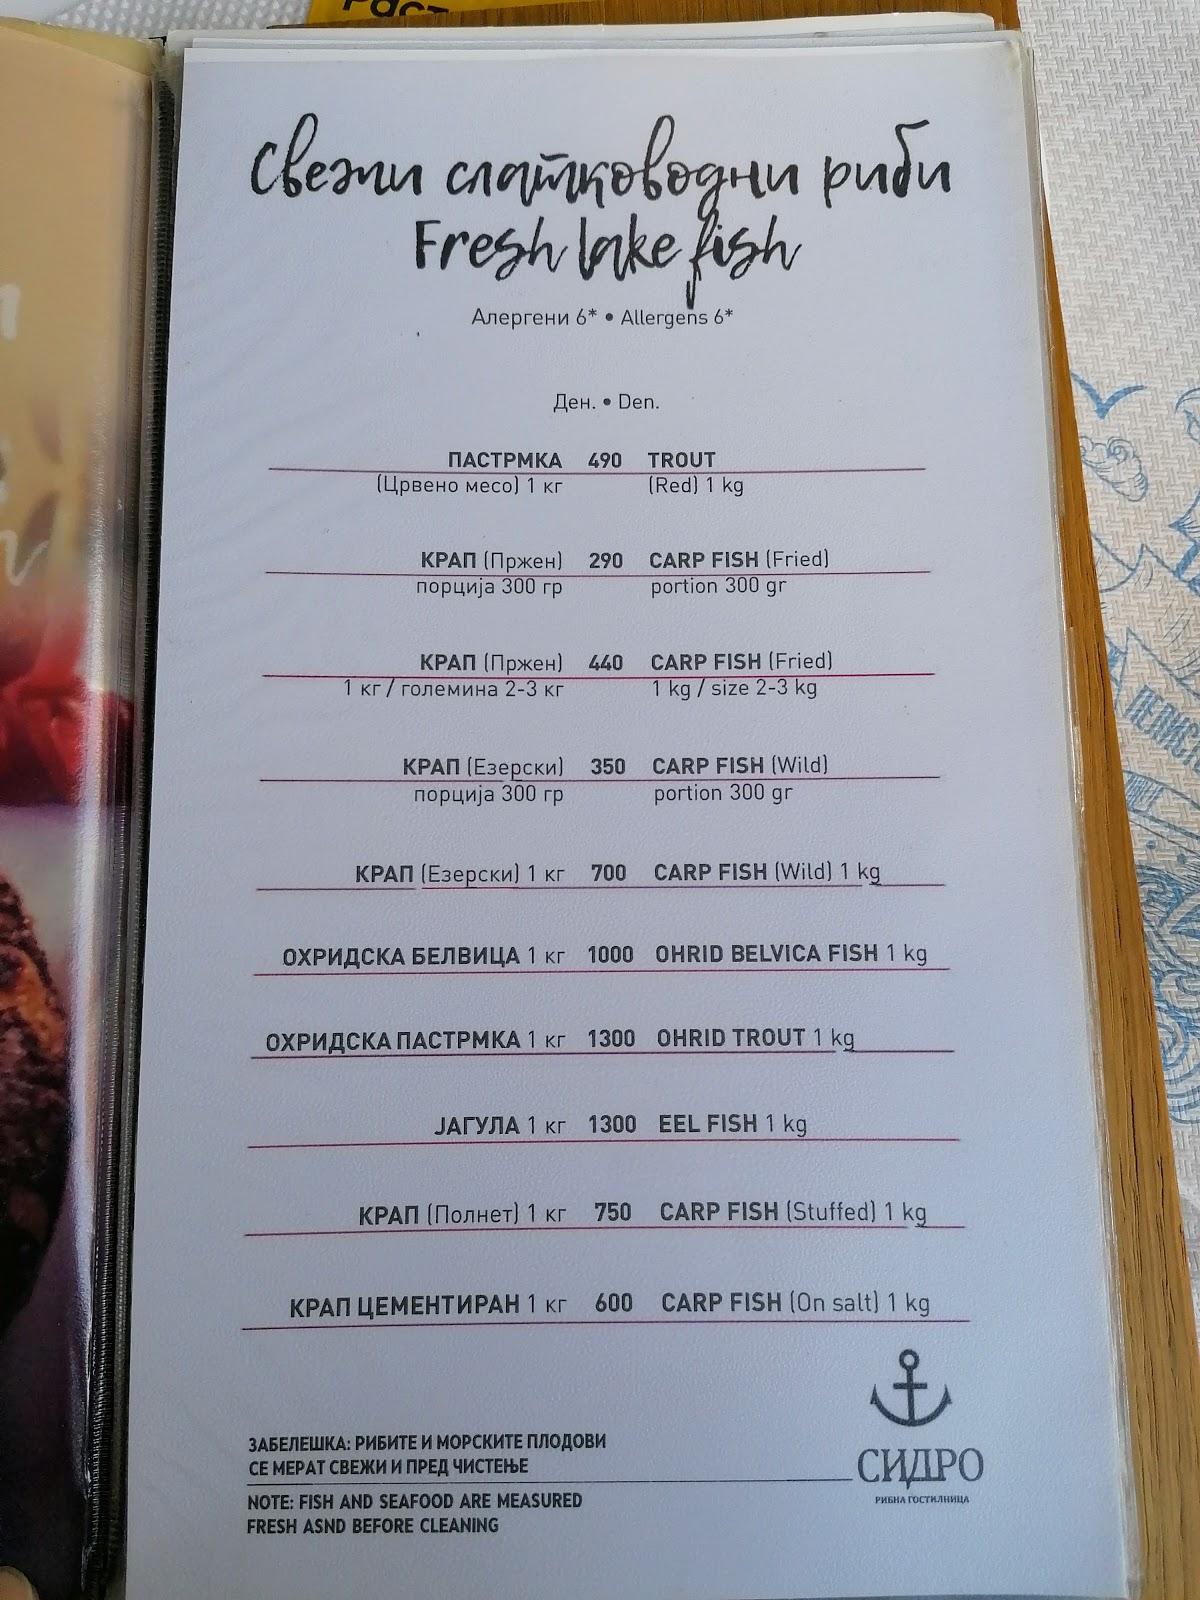 Раст
Свежи слатководни риби
Fresh lake fish
Алергени 6* • Allergens 6*
Ден. • Den.
ПАСТРМКА 490 TROUT
(Црвено месо) 1 кг (Red) 1 kg
КРАП (Пржен) 290 CARP FISH (Fried)
порција 300 гр portion 300 gr
КРАП (Пржен) 440 CARP FISH (Fried)
1 кг / големина 2-3 кг 1 kg / size 2-3 kg
КРАП (Езерски) 350 CARP FISH (Wild)
порција 300 гр portion 300 gr
КРАП (Езерски) 1 кг 700 CARP FISH (Wild) 1 kg
ОХРИДСКА БЕЛВИЦА 1 кг 1000 OHRID BELVICA FISH 1 kg
ОХРИДСКА ПАСТРМКА 1 кг 1300 OHRID TROUT 1 kg
ЈАГУЛА 1 кг 1300 EEL FISH 1 kg
КРАП (Полнет) 1 кг 750 CARP FISH (Stuffed) 1 kg
КРАП ЦЕМЕНТИРАН 1 кг 600 CARP FISH (On salt) 1 kg
ЗАБЕЛЕШКА: РИБИТЕ И МОРСКИТЕ ПЛОДОВИ
СЕ МЕРАТ СВЕЖИ И ПРЕД ЧИСТЕЊЕ
NOTE: FISH AND SEAFOOD ARE MEASURED
FRESH ASND BEFORE CLEANING
СИДРО
РИБНА ГОСТИЛНИЦА